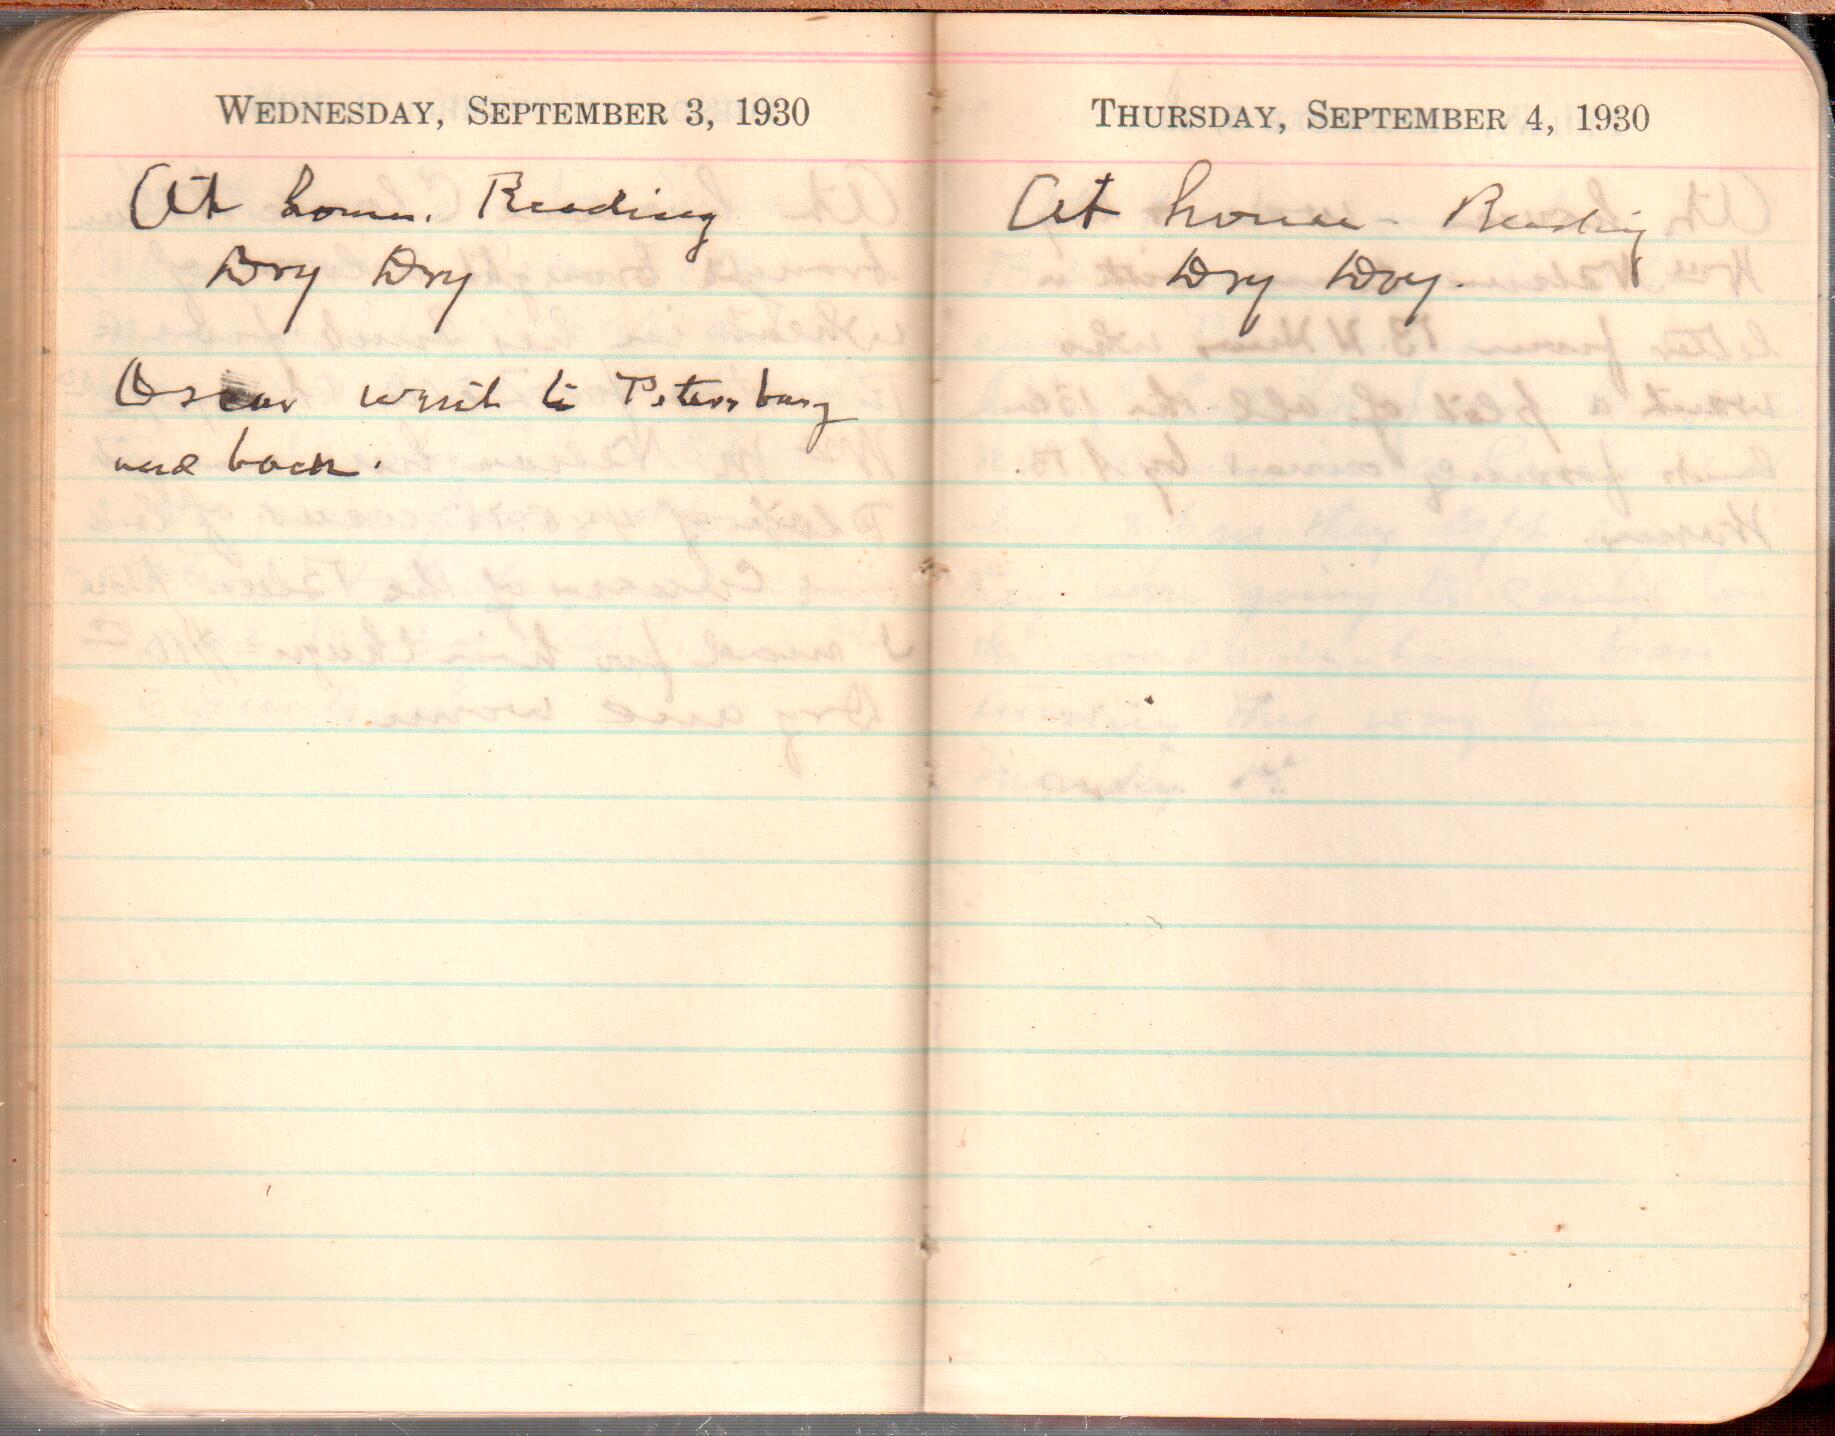 WEDNESDAY, SEPTEMBER 3, 1930
At home. Reading
Dry Dry
Oscar went to Petersburg
and back.
THURSDAY, SEPTEMBER 4, 1930
At home - Reading
Dry Dry.